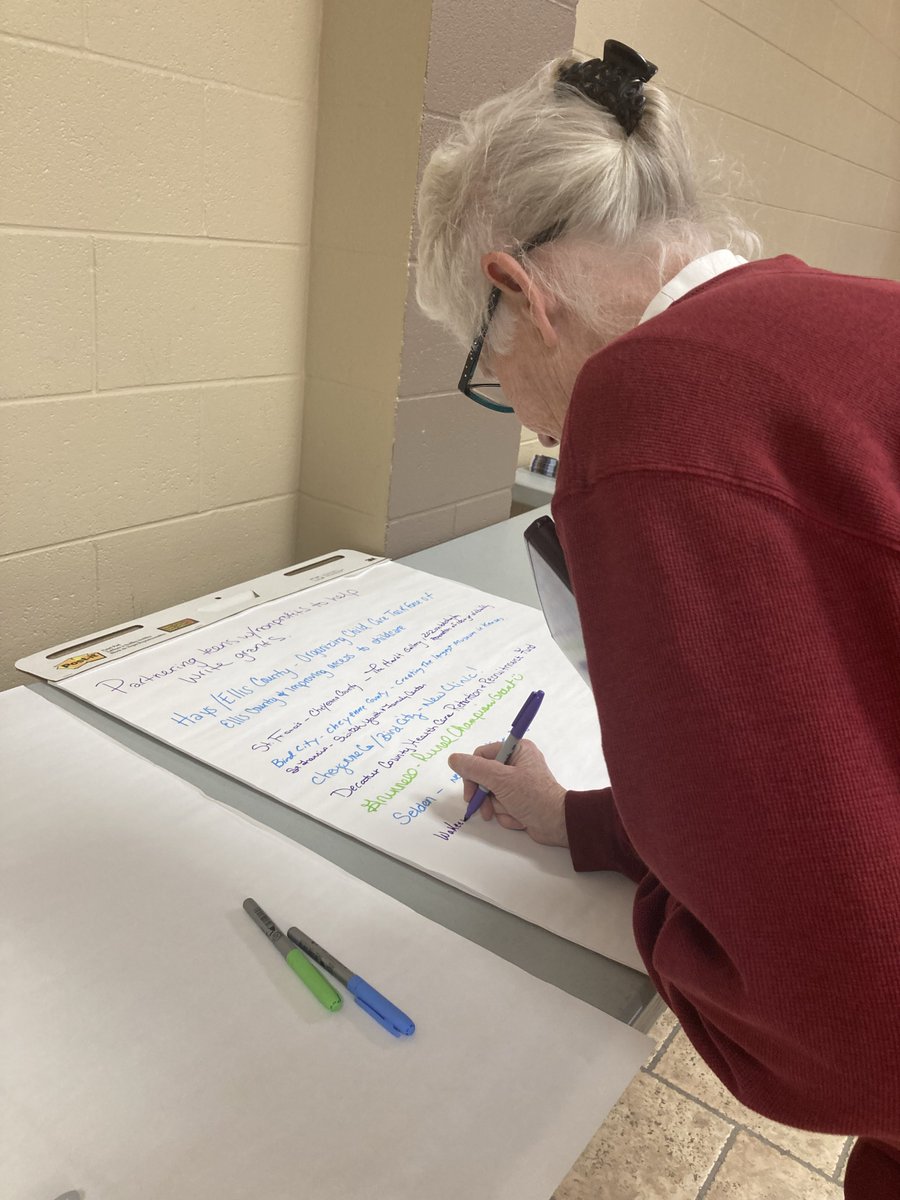 Post-it
Partnering teams w/nonprofits to help
write grants.
Hays/Ellis County - Organizing Child Care Task Force of
Ellis County & Improving access to childcare
St. Francis - Cheyenne County - The Hawk Gallery
Bird City - Cheyenne County - Creating the largest museum in Kansas
St. Francis -
Cheyenne Co/Bird City - New Clinic!
Decatur County Health Care Retention & Recruitment Fund
Grinnell - Rural Champion Grant
Selden -